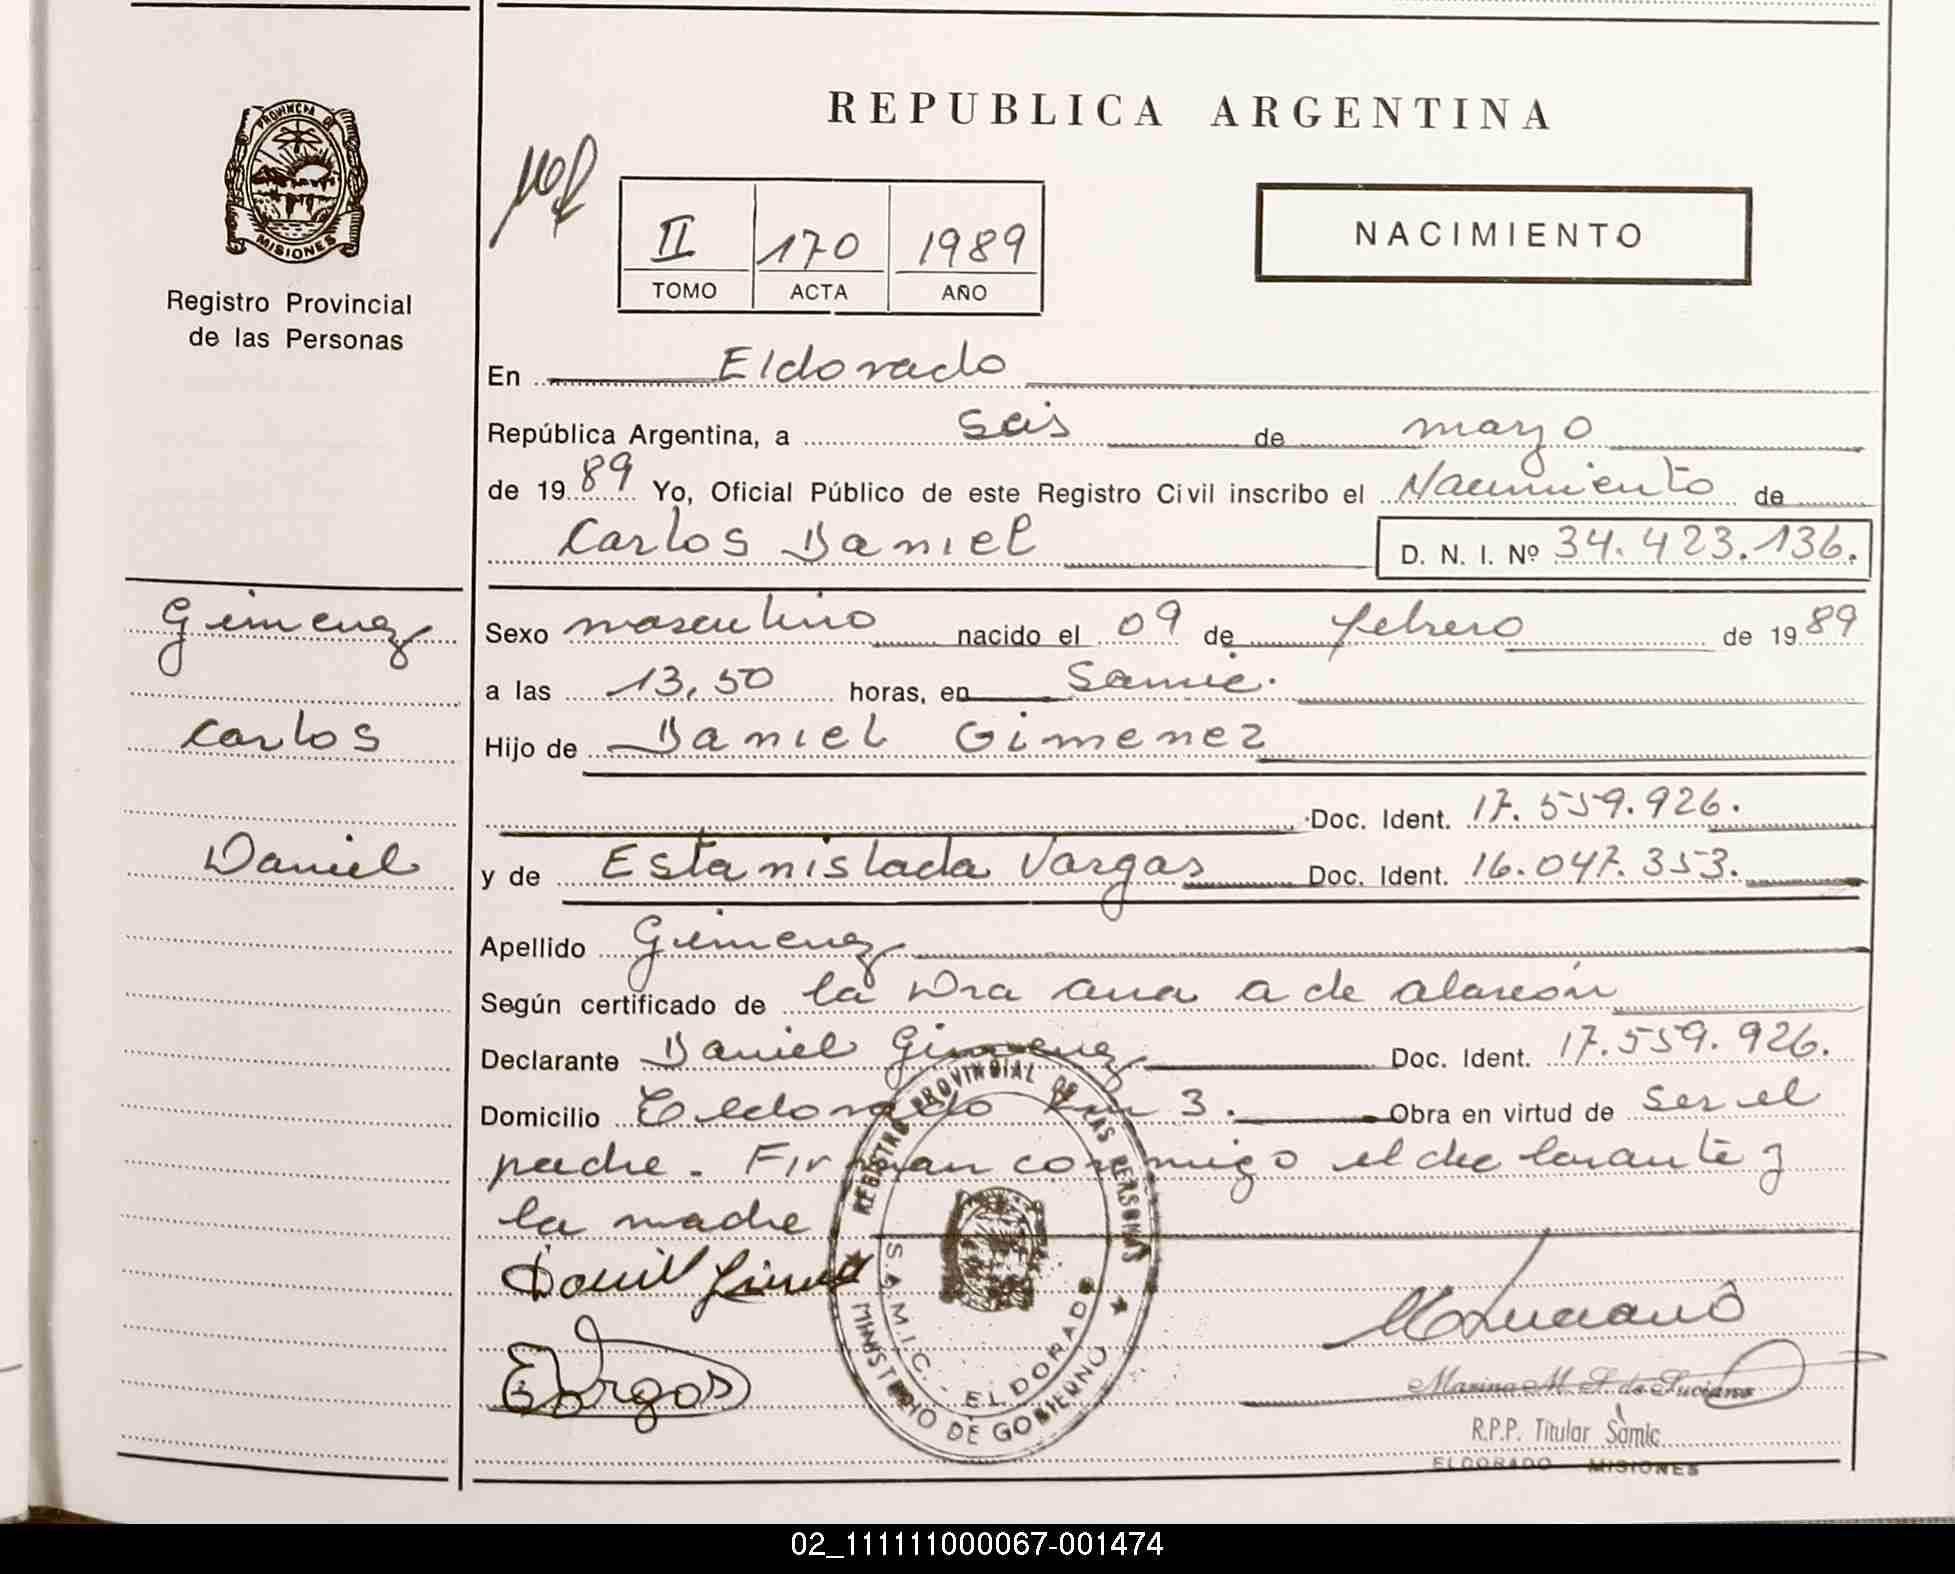 REPUBLICA ARGENTINA
PROVINCIA DE
MISIONES
Registro Provincial
de las Personas
II 170 1989
TOMO ACTA AÑO
NACIMIENTO
En Eldorado
República Argentina, a seis de marzo
de 1989 Yo, Oficial Público de este Registro Civil inscribo el Nacimiento de
Carlos Daniel D. N. I. Nº 34.423.136.
Gimenez
Carlos
Daniel
Sexo masculino nacido el 09 de febrero de 1989
a las 13,50 horas, en Samic.
Hijo de Daniel Gimenez
Doc. Ident. 17.559.926.
y de Estanislada Vargas Doc. Ident. 16.047.353.
Apellido Gimenez
Según certificado de la Dra Ana A de Alarcón
Declarante Daniel Gimenez Doc. Ident. 17.559.926.
Domicilio Eldorado Km 3. Obra en virtud de ser el
padre. Firman conmigo el declarante y
la madre
Daniel Gimenez
EVargas
REGISTRO PROVINCIAL DE LAS PERSONAS
S.A.M.I.C. - ELDORADO
MINISTERIO DE GOBIERNO
MLuciano
Marina M. F. de Luciano
R.P.P. Titular Samic
ELDORADO MISIONES
02_111111000067-001474